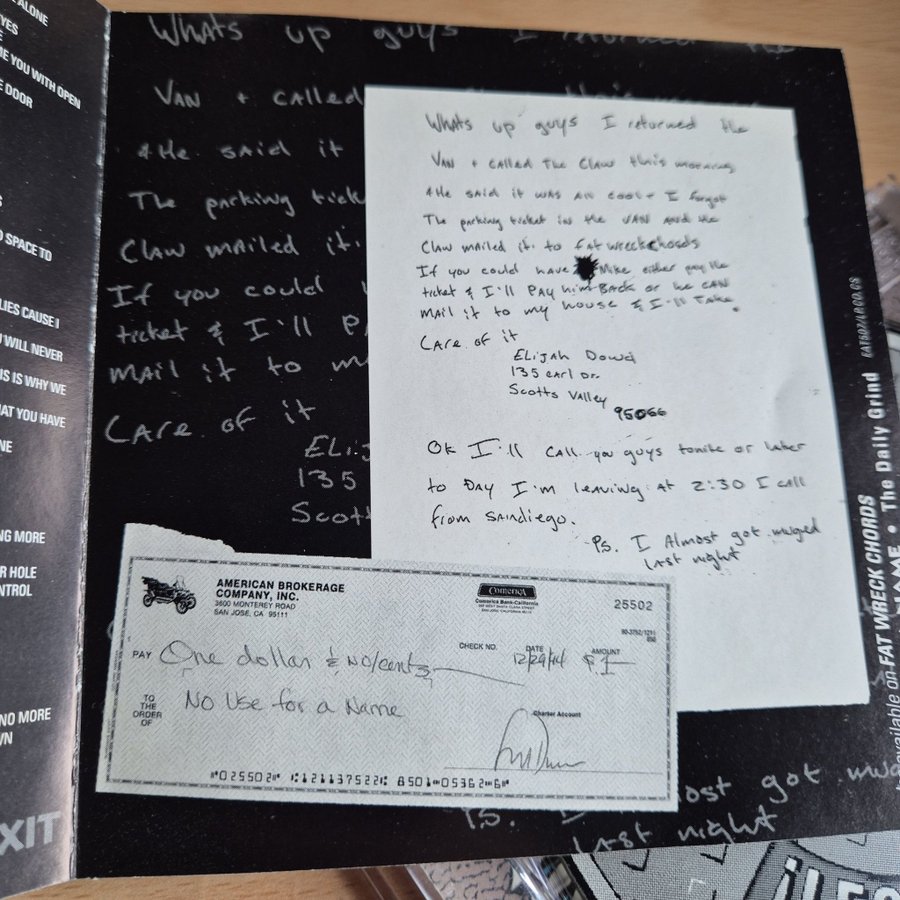 ALONE
YES
ME YOU WITH OPEN
E DOOR
S
O SPACE TO
LIES CAUSE I
YOU WILL NEVER
THIS IS WHY WE
WHAT YOU HAVE
NE
NG MORE
R HOLE
NTROL
NO MORE
WN
XIT
Whats up guys I returned the
VAN + called
+He said it
The parking tick
Claw mailed it.
If you could
ticket & I'll PA
mail it to m
Care of it
Elij
135
Scott
Whats up guys I returned the
VAN + called The Claw this morning
+He said it was all cool + I forgot
The parking ticket in the VAN and the
Claw mailed it to fat wreckchords
If you could have Mike either pay the
ticket & I'll PAY him BACK or he CAN
mail it to my house & I'll Take
Care of it
Elijah Dowd
135 earl Dr.
Scotts Valley
95066
Ok I'll call you guys tonite or later
to Day I'm leaving at 2:30 I call
from Saindiego.
Ps. I Almost got muged
last night
AMERICAN BROKERAGE
COMPANY, INC.
3600 MONTEREY ROAD
SAN JOSE, CA 95111
Comerica
Comerica Bank-California
25502
90-3752/1211
CHECK NO.
DATE
AMOUNT
PAY One dollar & no/cents
12/29/94 $1
TO
THE
ORDER
OF
No Use for a Name
Charter Account
⑈025502⑈ ⑆121137522⑆ 8501⑉05362⑉6⑈
P.S. I
ost got mug
last night
available on FAT WRECK CHORDS
NAME • The Daily Grind FAT507/LP,CD,CS